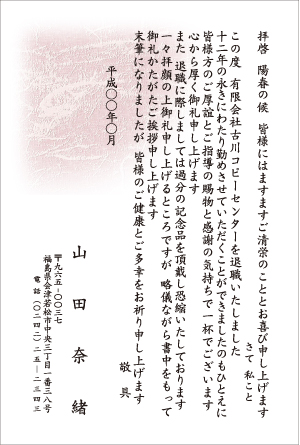 拝啓　陽春の候　皆様にはますますご清栄のこととお喜び申し上げます
さて　私こと
この度　有限会社古川コピーセンターを退職いたしました
十二年の永きにわたり勤めさせていただくことができましたのもひとえに
皆様方のご厚誼とご指導の賜物と感謝の気持ちで一杯でございます
心から厚く御礼申し上げます
また　退職に際しましては過分の記念品を頂戴し恐縮いたしております
一々拝顔の上御礼申し上げるところですが　略儀ながら書中をもって
御礼かたがたご挨拶申し上げます
末筆になりましたが　皆様のご健康とご多幸をお祈り申し上げます
敬具
平成〇〇年〇月
山田奈緒
〒九六五-〇〇三七
福島県会津若松市中央三丁目一番三八号
電話（〇二四二）二五-二三四三